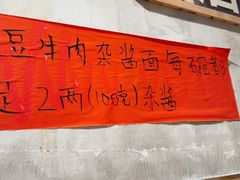 豆牛肉杂酱面每碗都
足2两(100克)杂酱